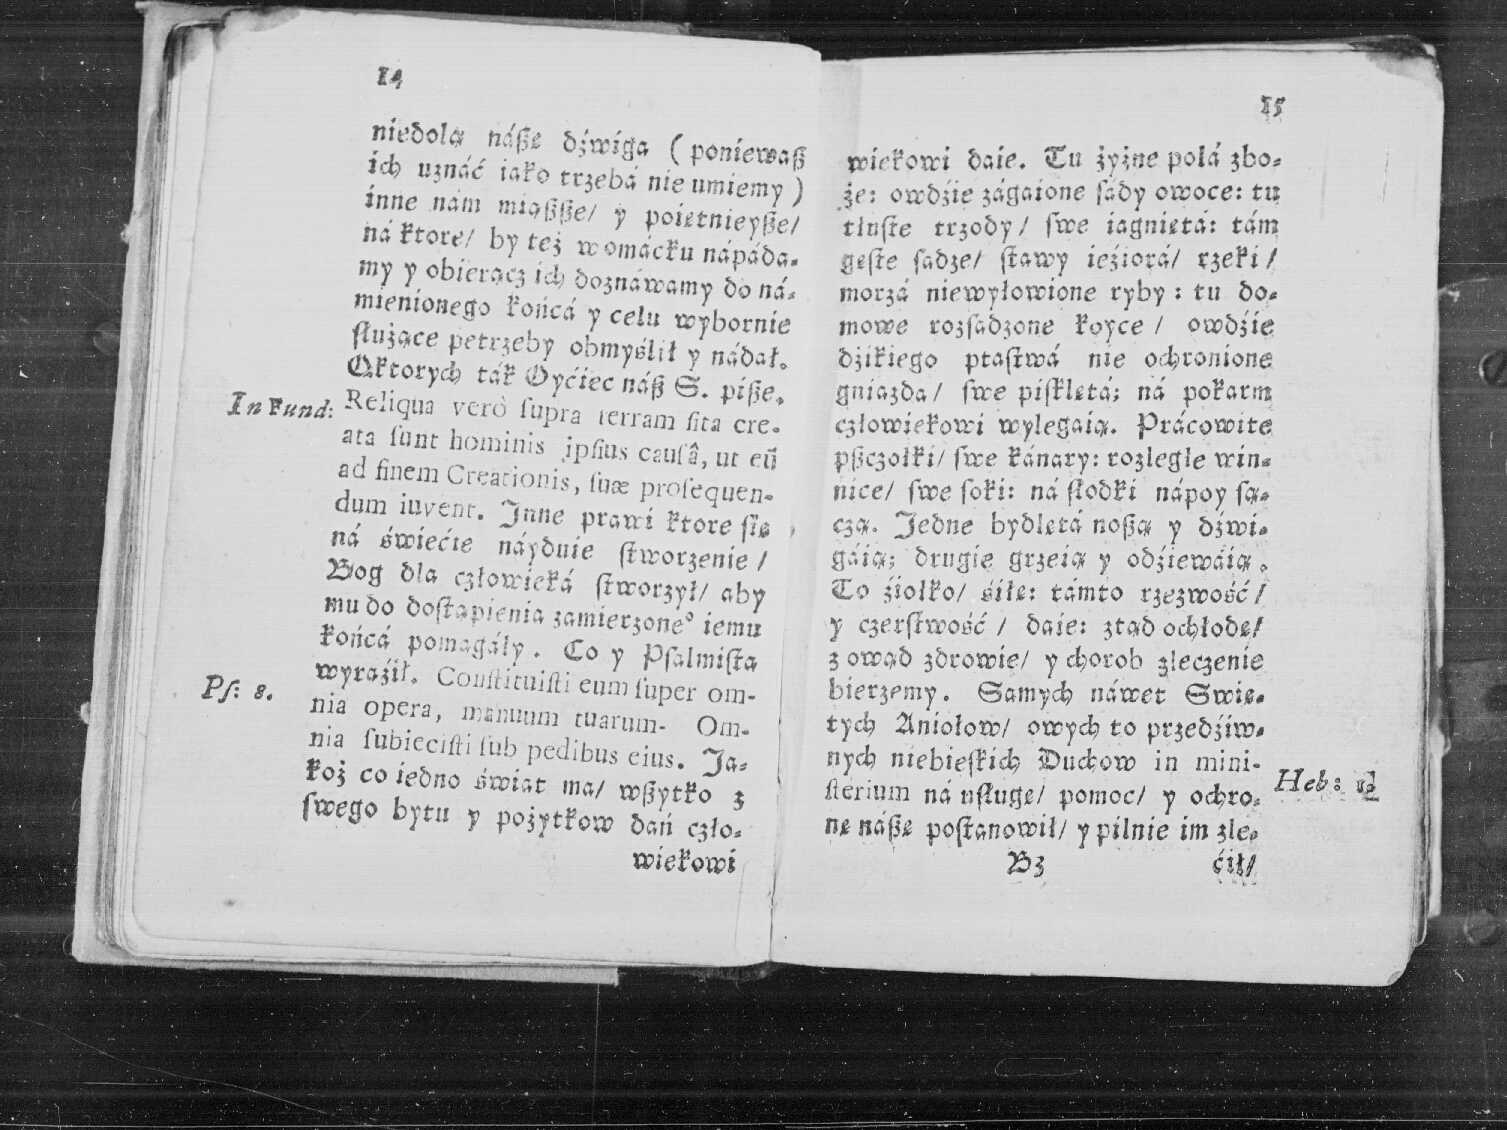 14
niedolą náße dźwiga ( poniewaß
ich uznáć iako trzebá nie umiemy )
inne nam miąßße/ y poiętnieyße/
ná ktore/ by też womácku nápáda-
my y obierącz ich doznáwamy do ná-
mienionego końcá y celu wybornie
służące petrzeby obmyślił y nádał.
Oktorych ták Oyćiec náß S. piße.
In Fund: Reliqua verò supra terram sita cre-
ata sunt hominis ipsius causâ, ut eũ
ad finem Creationis, suæ prosequen-
dum iuvent. Inne prawi ktore się
ná świećie náyduie stworzenie /
Bog dla człowieká stworzył/ aby
mu do dostąpienia zamierzone° iemu
końcá pomagáły. Co y Psalmista
wyraźił. Constituisti eum super om-
Ps: 8. nia opera, manuum tuarum- Om-
nia subiecisti sub pedibus eius. Ja-
koż co iedno świat ma/ wßytko z
swego bytu y pożytkow dań czło-
wiekowi
15
wiekowi daie. Tu żyżne polá zbo-
że: owdźie zágaione sády owoce: tu
tłuste trzody/ swe iagniętá: tám
gęste sadze/ stawy ieźiorá/ rzeki/
morzá niewyłowione ryby: tu do-
mowe rozsadzone koyce / owdźie
dźikiego ptastwá nie ochronione
gniazda/ swe pisklętá; ná pokarm
człowiekowi wylegaią. Prácowite
pßczołki/ swe kánary: rozległe win-
nice/ swe soki: ná słodki nápoy są-
czą. Jedne bydlętá noßą y dźwi-
gáią; drugie grzeią y odźiewáią.
To źiołko/ siłę: támto rzezwość/
y czerstwość / daie: ztąd ochłodę/
z owąd zdrowie/ y chorob zleczenie
bierzemy. Samych náwet Swię-
tych Aniołow/ owych to przedźiw-
nych niebieskich Duchow in mini-
sterium ná usługę/ pomoc/ y ochro- Heb:
nę náßę postanowił/ y pilnie im zle-
B3 ćił/